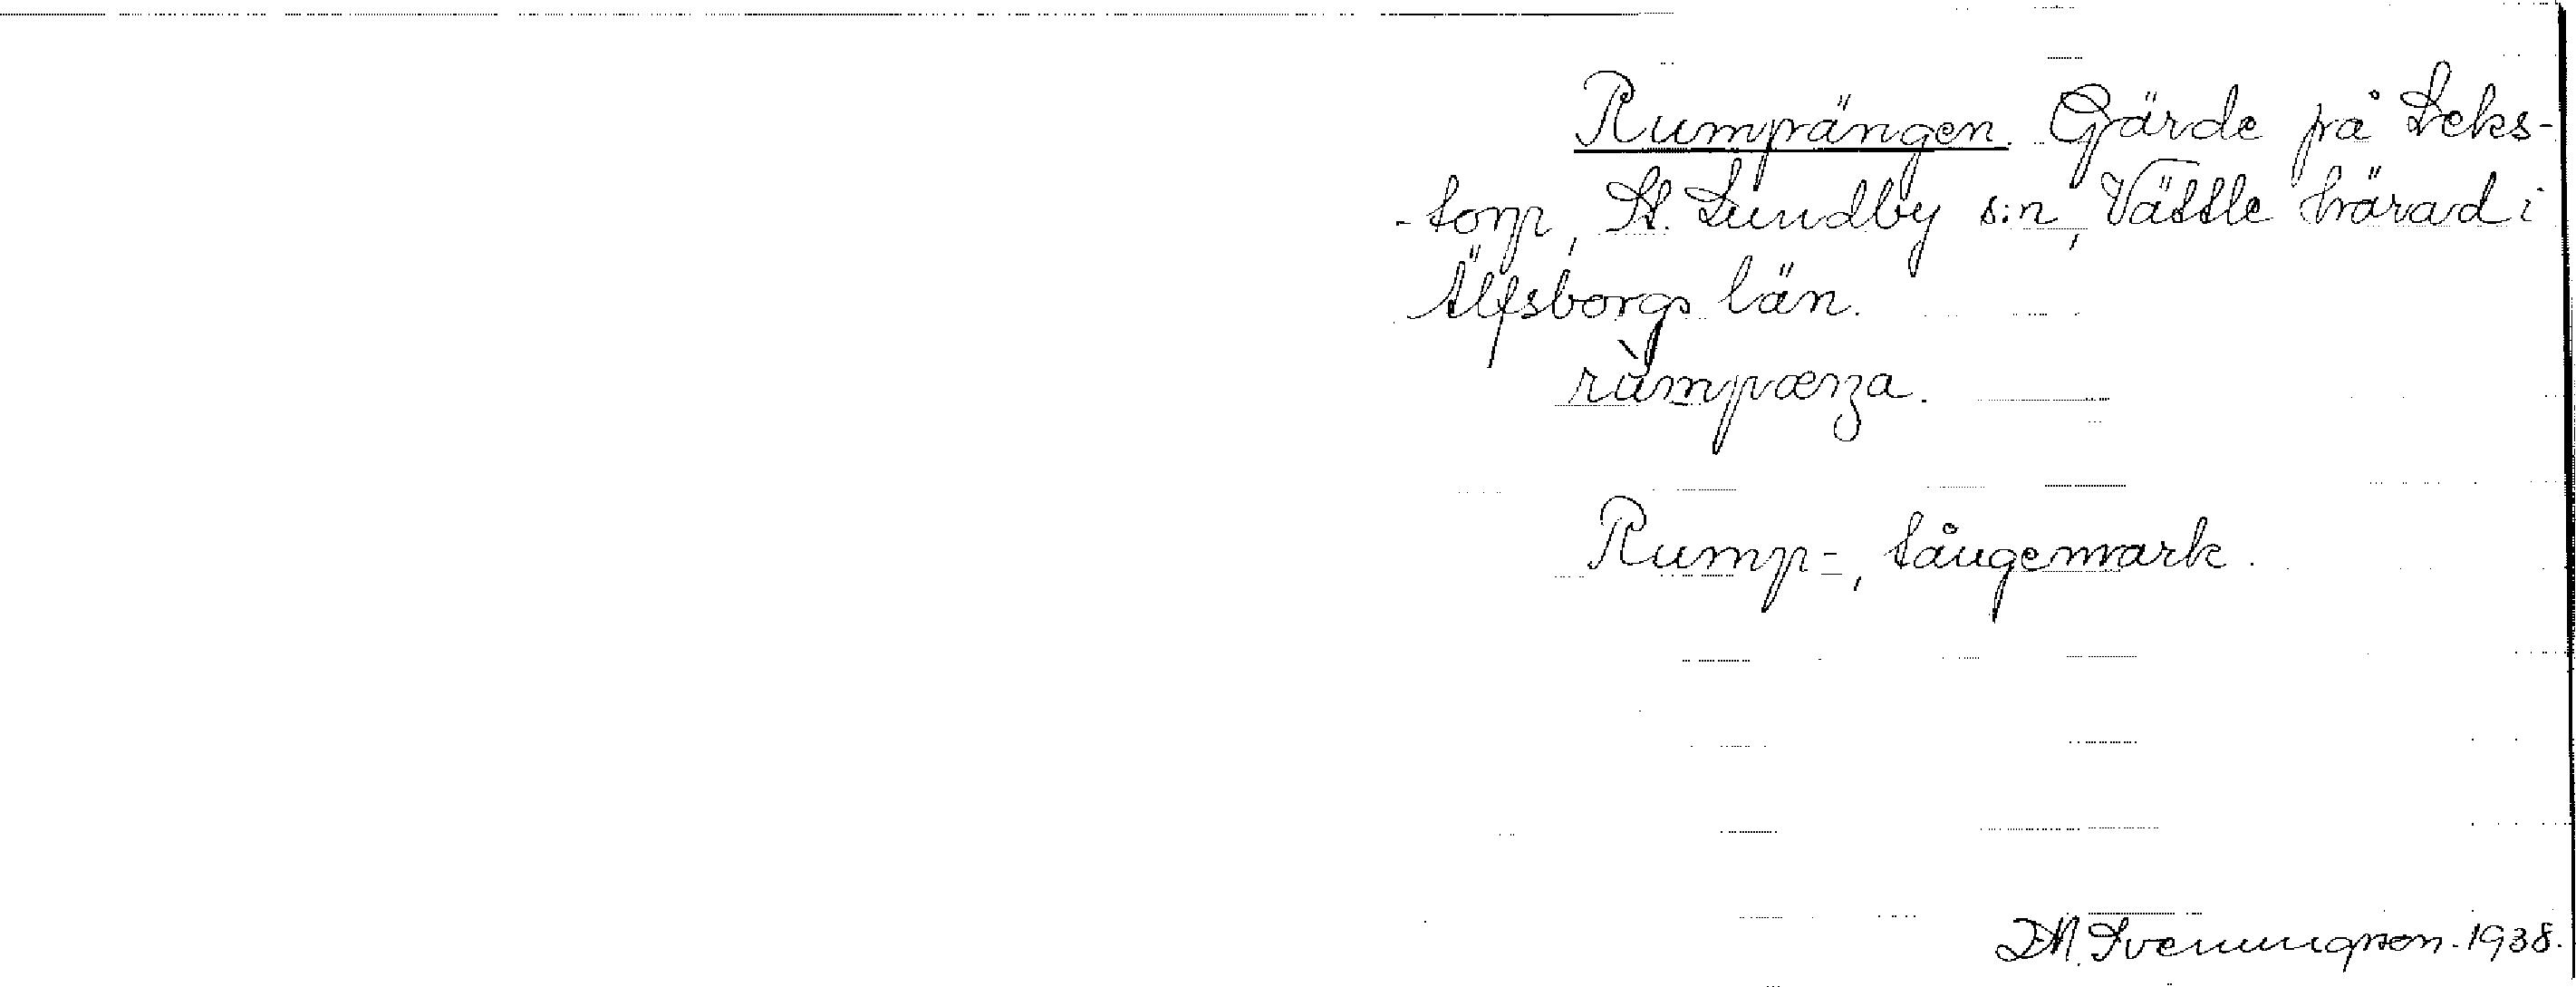 Rumpängen. Gärde på Leks-
-torp, St. Lundby s:n, Vättle härad i
Älfsborgs län.
rùmpæŋa.
Rump-, tångemark.
Sveningson. 1938.